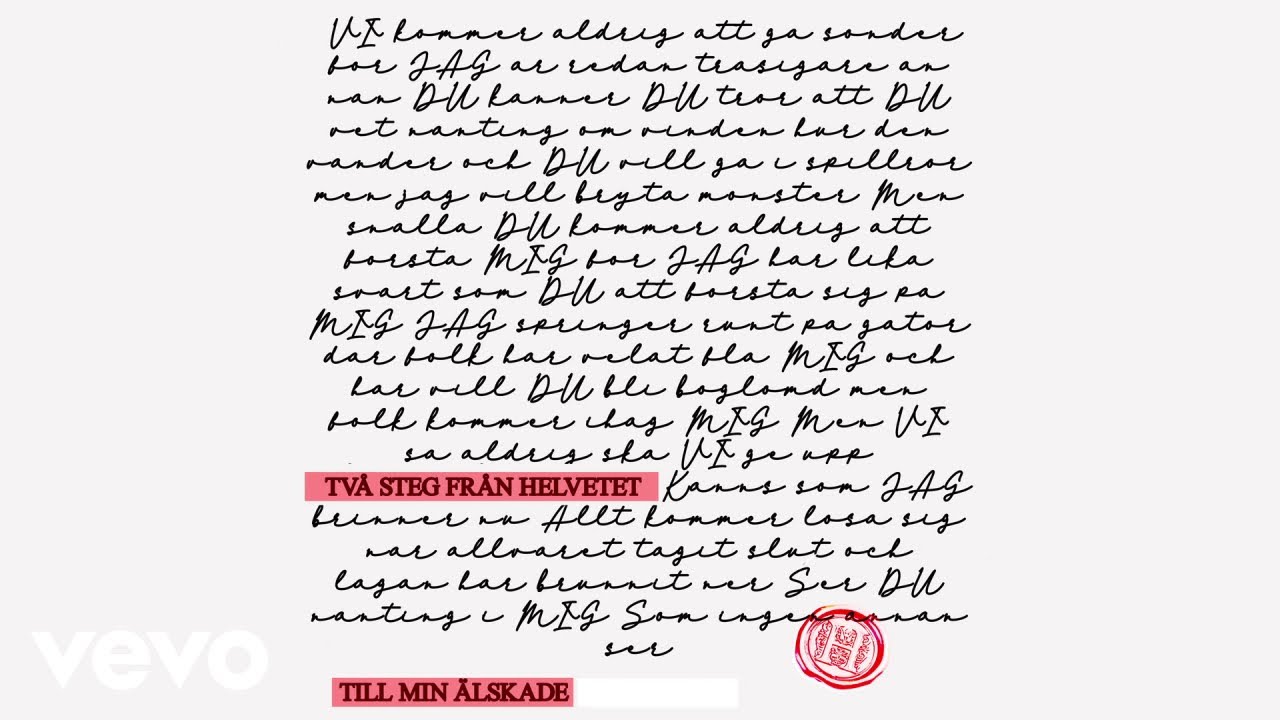 VI kommer aldrig att ga sonder
for JAG ar redan trasigare an
nan DU kanner DU tror att DU
vet nanting om vinden hur den
vander och DU vill ga i spillror
men jag vill bryta monster Men
snalla DU kommer aldrig att
forsta MIG for JAG har lika
svart som DU att forsta sig pa
MIG JAG springer runt pa gator
dar folk har velat fla MIG och
har vill DU bli foglomd men
folk kommer ihag MIG Men VI
sa aldrig ska VI ge upp
TVÅ STEG FRÅN HELVETET Kanns som JAG
brinner nu Allt kommer losa sig
nar allvaret tagit slut och
lagan har brunnit ner Ser DU
nanting i MIG Som ingen annan
ser
TILL MIN ÄLSKADE
vevo